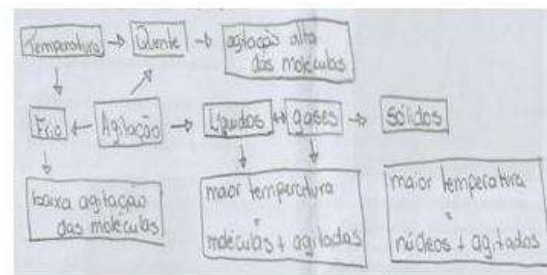 Temperatura → Quente → agitação alta
das moléculas
Frio ← Agitação → Líquidos ↔ gases → sólidos
baixa agitação
das moléculas
maior temperatura
=
moléculas + agitadas
maior temperatura
=
núcleos + agitados